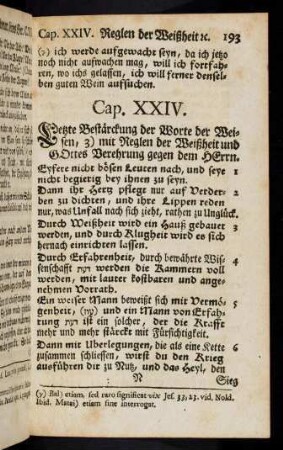 Cap. XXIV. Reglen der Weißheit ꝛc. 193
(y) ich werde aufgewacht seyn, da ich jetzo
noch nicht aufwachen mag, will ich fortfah-
ren, wo ichs gelassen, ich will ferner densel-
ben guten Wein aufsuchen.
Cap. XXIV.
Letzte Bestärckung der Worte der Wei-
sen, 3) mit Reglen der Weißheit und
GOttes Verehrung gegen dem HErrn.
Eyfere nicht bösen Leuten nach, und seye 1
nicht begierig bey ihnen zu seyn.
Dann ihr Hertz pflegt nur auf Verder- 2
ben zu dichten, und ihre Lippen reden
nur, was Unfall nach sich zieht, rathen zu Unglück.
Durch Weißheit wird ein Hauß gebauet 3
werden, und durch Klugheit wird es sich
hernach einrichten lassen.
Durch Erfahrenheit, durch bewährte Wis- 4
senschafft דעת werden die Kammern voll
werden, mit lauter kostbaren und ange-
nehmen Vorrath.
Ein weiser Mann beweißt sich mit Vermö- 5
genheit, (עוז) und ein Mann von Erfah-
rung דעת ist ein solcher, der die Krafft
mehr und mehr stärckt mit Fürsichtigkeit.
Dann mit Uberlegungen, die als eine Kette 6
zusammen schliessen, wirst du den Krieg
ausführen dir zu Nutz, und das Heyl, den
N Sieg
(y) Bal) etiam, sed raro significat vix Jes. 33, 23. vid. Nold.
ibid. Matai) etiam sine interrogat.